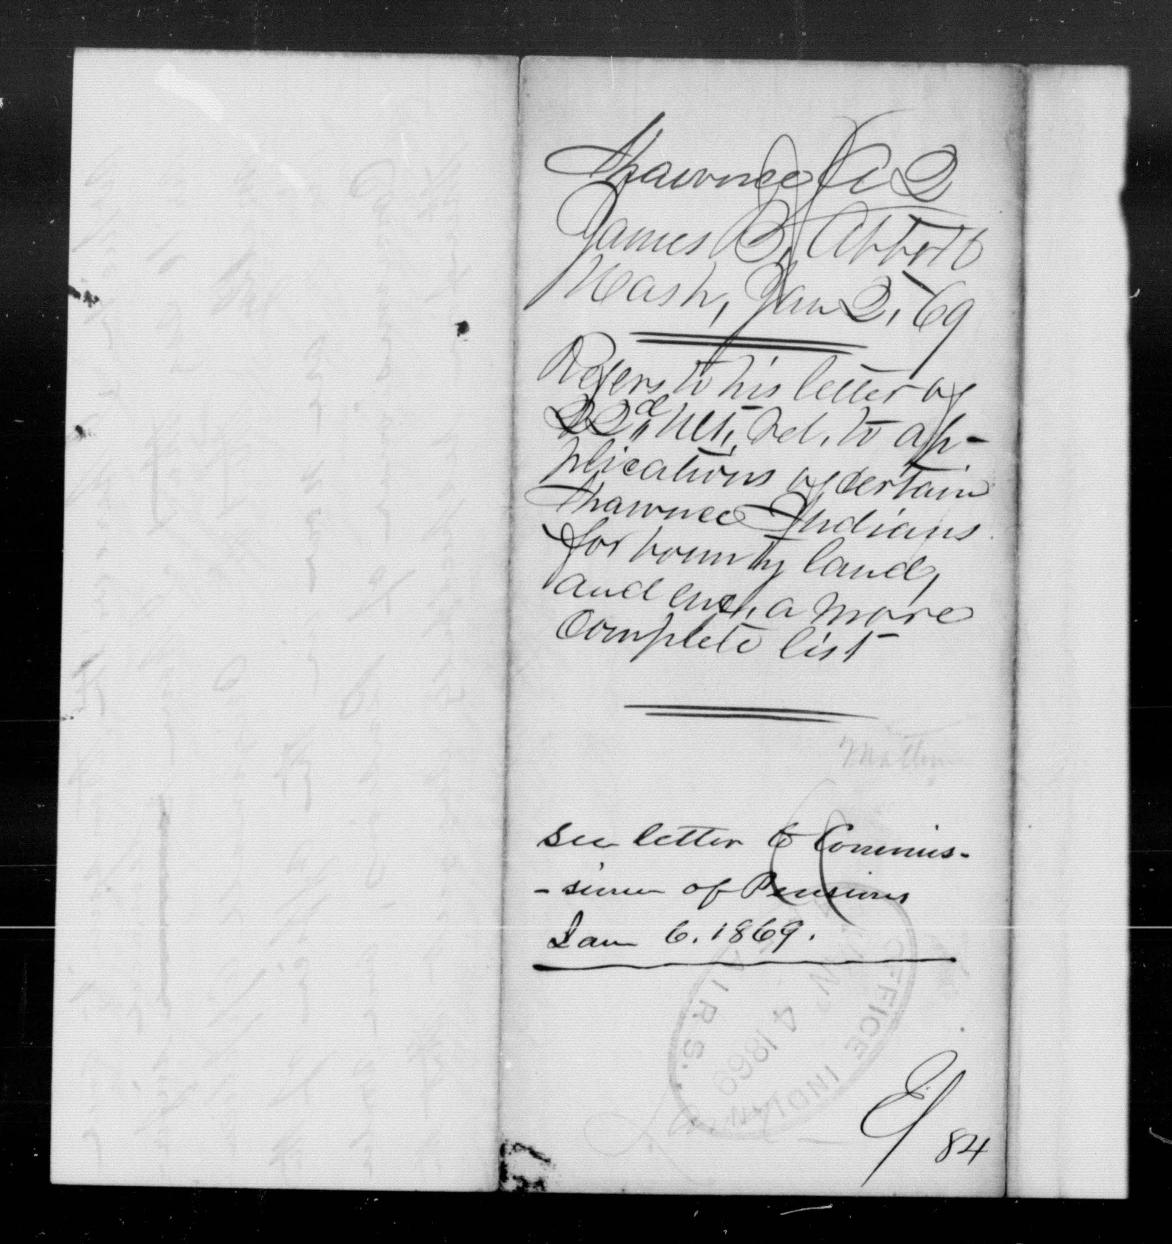 Shawnee A 2
James B. Abbott
Wash, Jan 2, 69
Refers to his letter of
22d Ult, rel. to ap-
plications of certain
Shawnee Indians
for bounty land,
and encl. a more
complete list
see letter to Commis-
-sioner of Pensions
Jan 6. 1869.
OFFICE INDIAN AFFAIRS.
JAN 4 1869
84